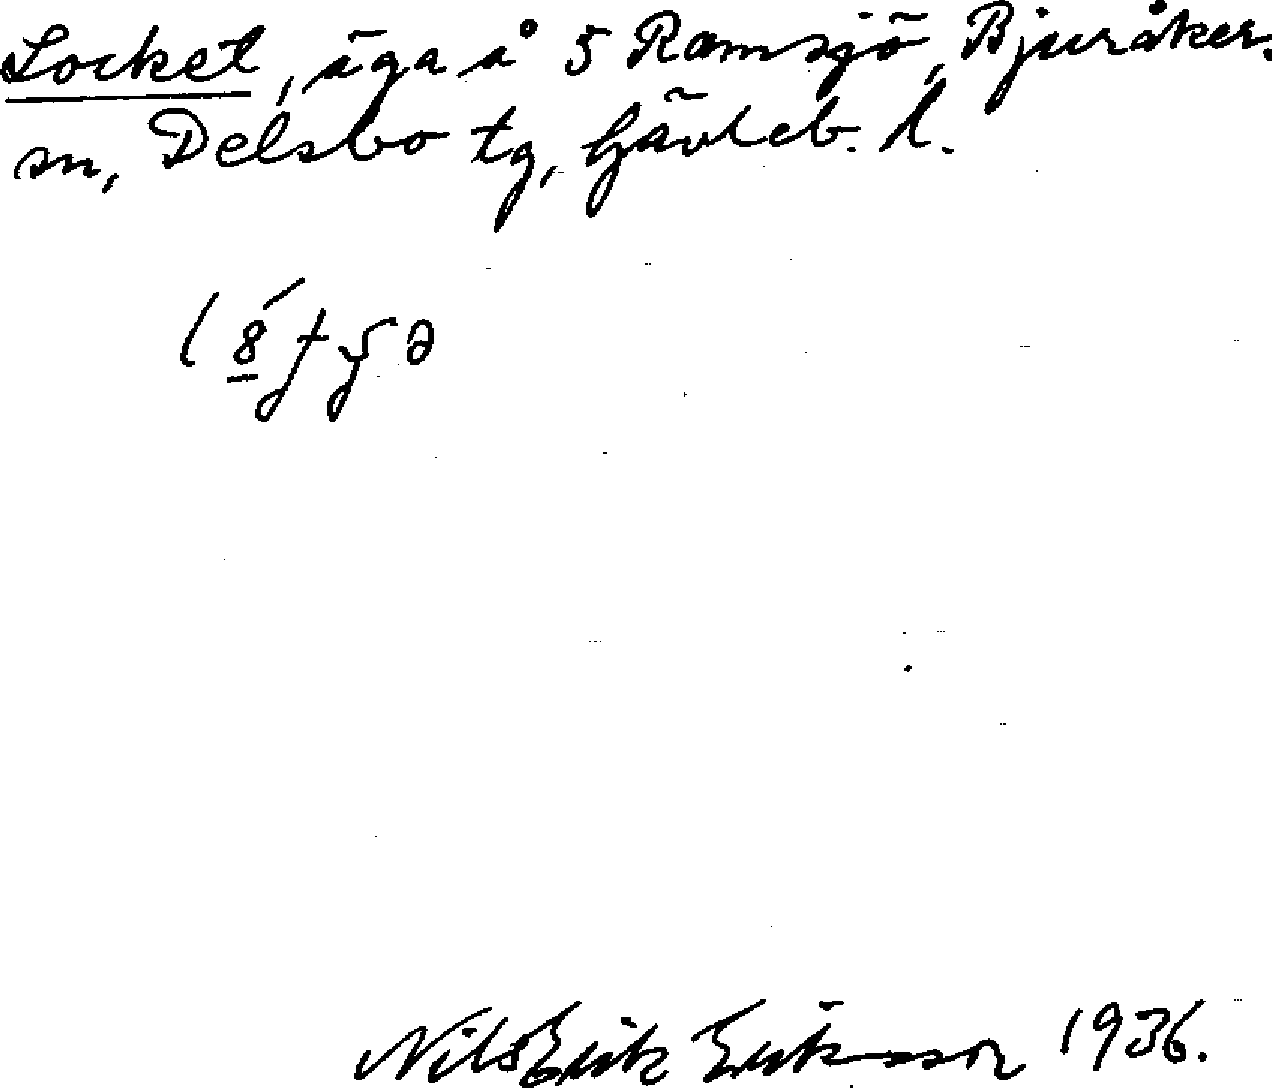 Locket, äga å 5 Ramsjö, Bjuråker
sn, Delsbo tg, Gävleb. l.
Nils Erik Eriksson 1936.